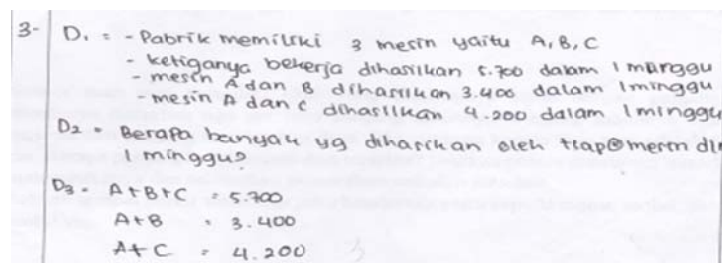 3- D1 = - Pabrik memiliki 3 mesin yaitu A, B, C
- ketiganya bekerja dihasilkan 5.700 dalam 1 minggu
- mesin A dan B dihasilkan 3.400 dalam 1 minggu
- mesin A dan C dihasilkan 4.200 dalam 1 minggu
D2 = Berapa banyak yg dihasilkan oleh tiap mesin dlm
1 minggu?
D3 = A+B+C = 5.700
A+B = 3.400
A+C = 4.200